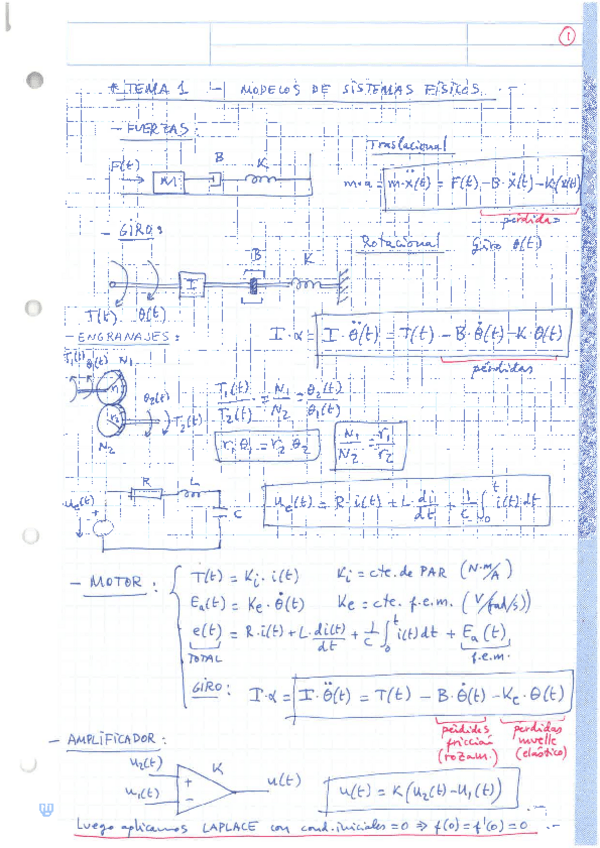 1
* TEMA 1 - MODELOS DE SISTEMAS FÍSICOS
- FUERZAS:
Traslacional
F(t) M B K
m·a = m·ẍ(t) = F(t) - B·ẋ(t) - K·x(t)
pérdidas
- GIRO:
Rotacional Giro θ(t)
I B K
T(t) θ(t)
I·α = I·θ̈(t) = T(t) - B·θ̇(t) - K·θ(t)
pérdidas
- ENGRANAJES:
T₁(t) θ₁(t) N₁
r₁ r₂ θ₂(t) T₂(t)
N₂
T₁(t)/T₂(t) = N₁/N₂ = θ₂(t)/θ₁(t)
r₁·θ₁ = r₂·θ₂ N₁/N₂ = r₁/r₂
R L C
u_c(t) = R·i(t) + L·di/dt + 1/C ∫₀ᵗ i(t) dt
- MOTOR: T(t) = Kᵢ·i(t) Kᵢ = cte. de PAR (N·m/A)
Eₐ(t) = Kₑ·θ̇(t) Kₑ = cte. f.e.m. (V/rad/s)
e(t) = R·i(t) + L·di(t)/dt + 1/C ∫₀ᵗ i(t) dt + Eₐ(t)
TOTAL f.e.m.
GIRO: I·α = I·θ̈(t) = T(t) - B·θ̇(t) - Kₑ·θ(t)
pérdidas fricción (rozam.)
pérdidas muelle (elástico)
- AMPLIFICADOR:
u₂(t) + K u(t)
u₁(t) -
u(t) = K(u₂(t) - u₁(t))
Luego aplicamos LAPLACE con cond. iniciales = 0 ⇒ f(0) = f'(0) = 0